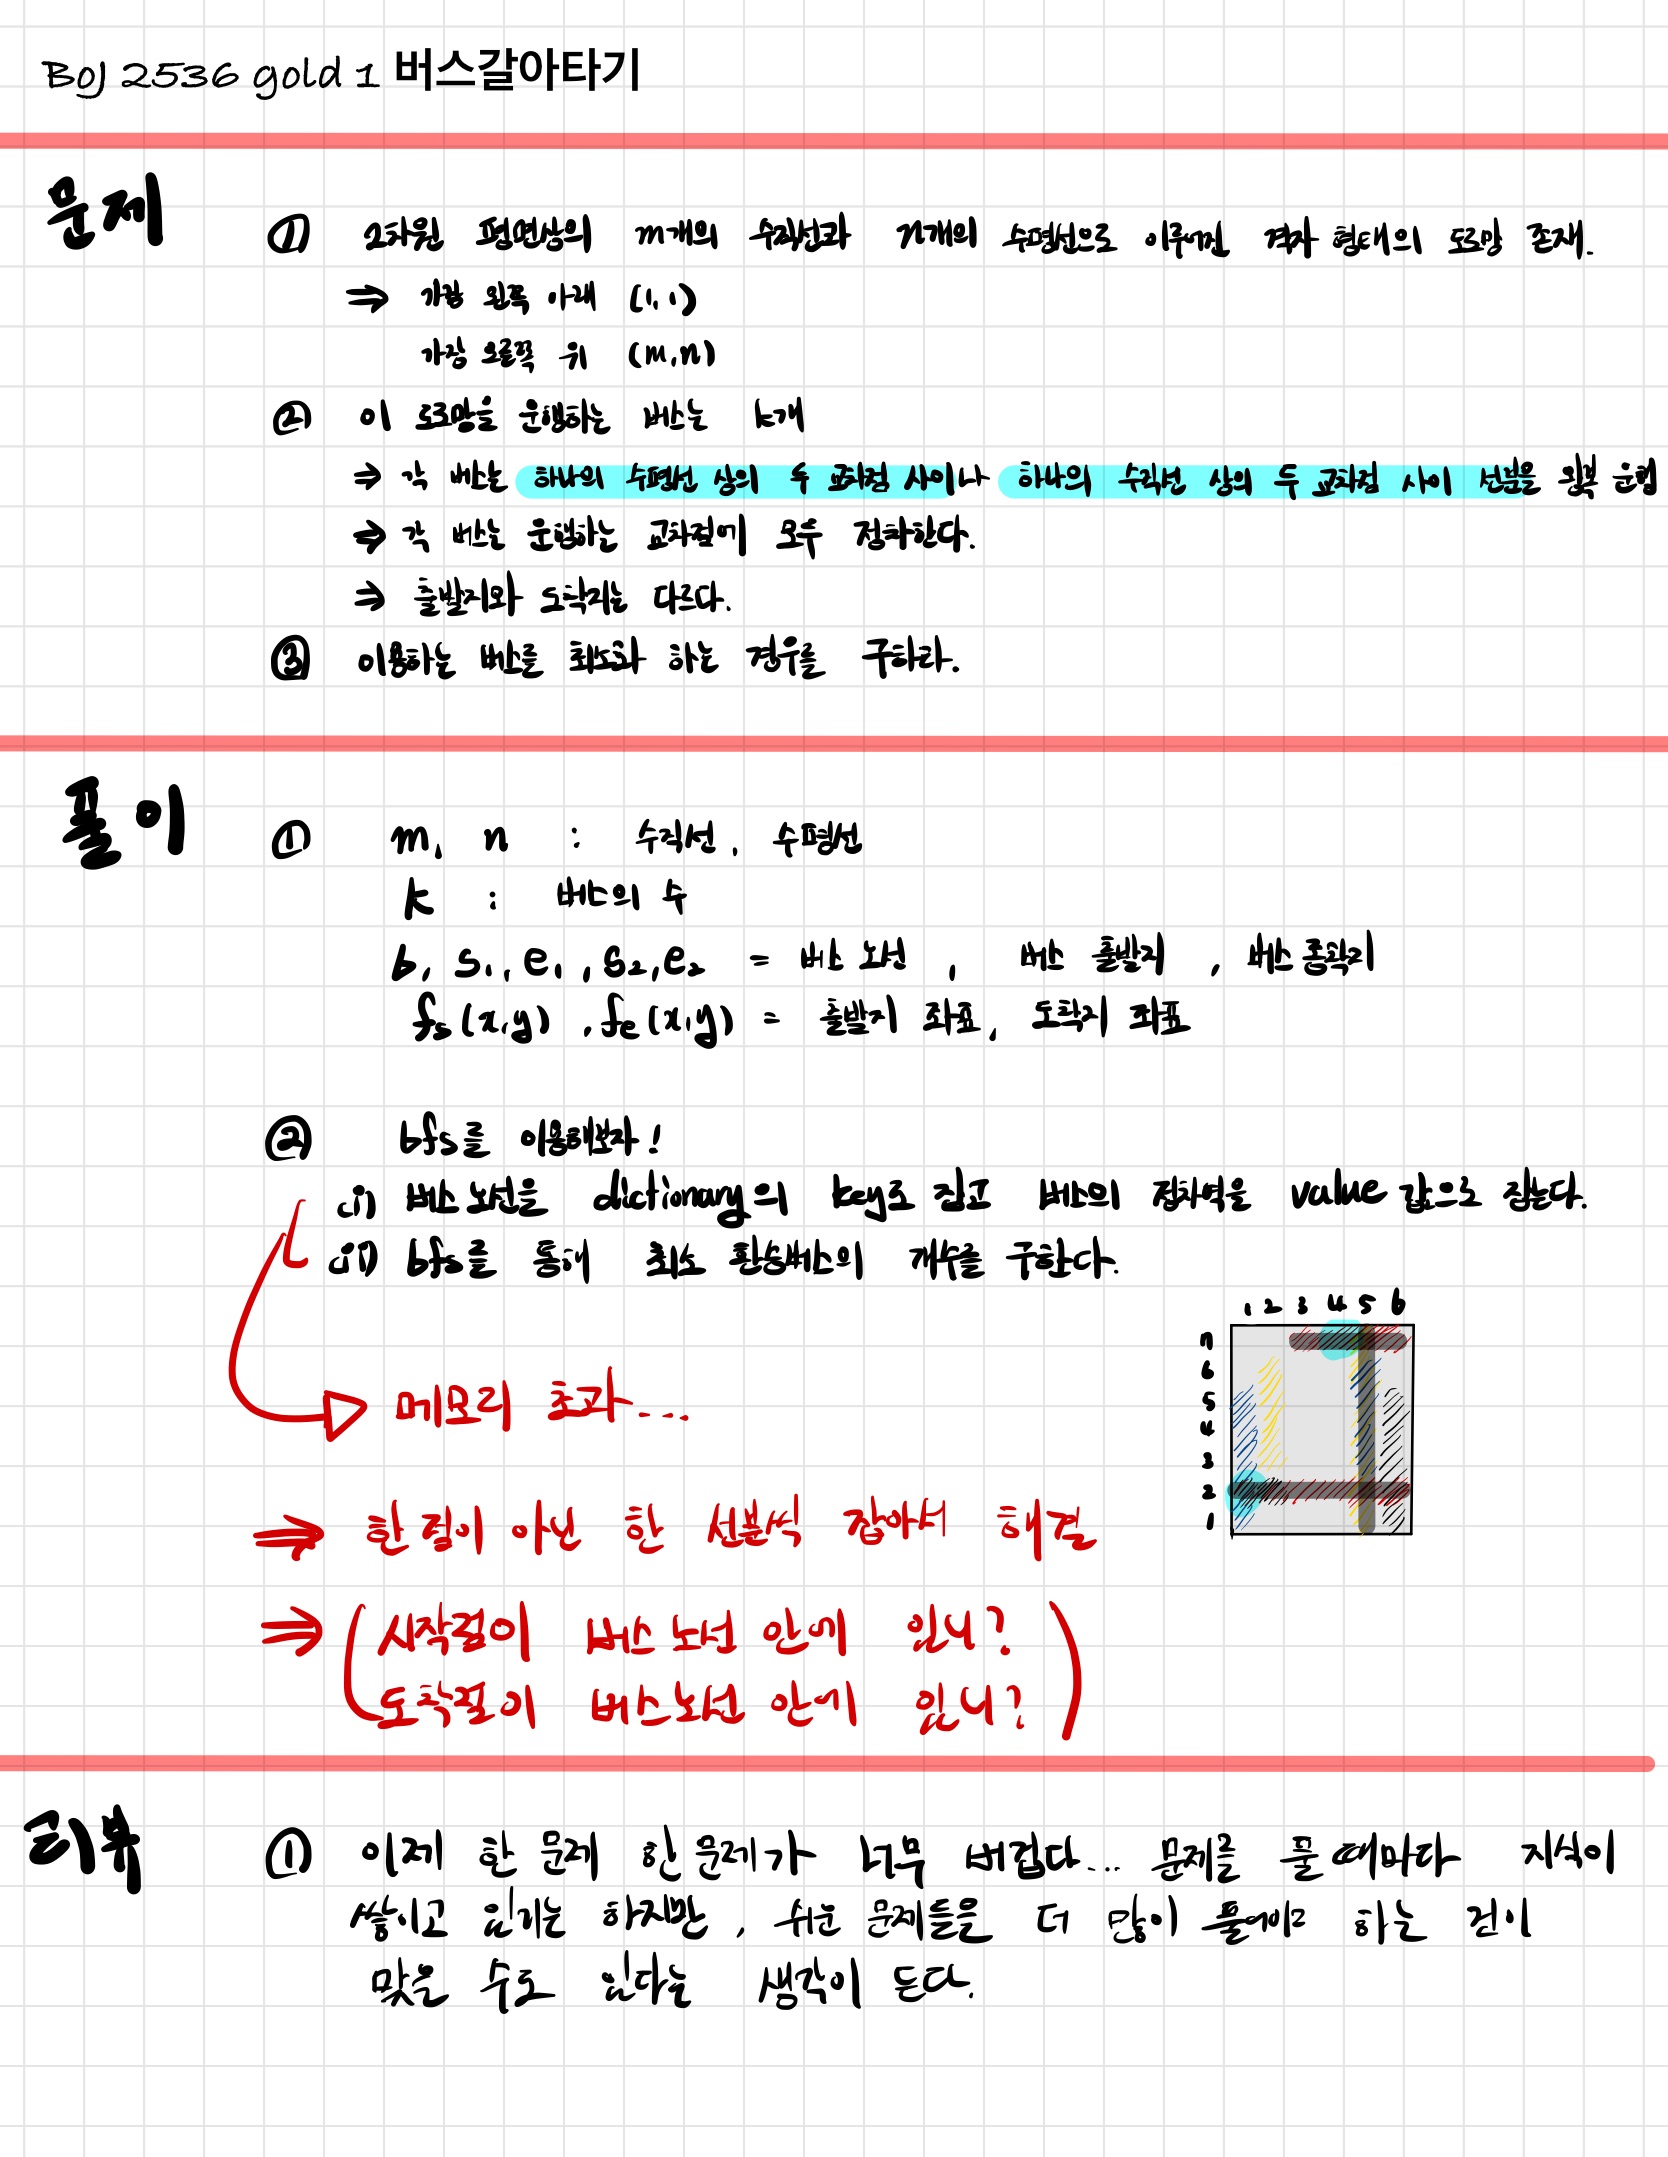 BOJ 2536 gold 1 버스갈아타기
문제
① 2차원 평면상의 m개의 수직선과 n개의 수평선으로 이루어진 격자 형태의 도로망 존재.
⇒ 가장 왼쪽 아래 (1,1)
가장 오른쪽 위 (m,n)
② 이 도로망을 운행하는 버스는 k개
⇒ 각 버스는 하나의 수평선 상의 두 교차점 사이나 하나의 수직선 상의 두 교차점 사이 선분을 왕복 운행
⇒ 각 버스는 운행하는 교차점에 모두 정차한다.
⇒ 출발지와 도착지는 다르다.
③ 이용하는 버스를 최소화 하는 경우를 구하라.
풀이
① m, n : 수직선, 수평선
k : 버스의 수
b, s₁, e₁, s₂, e₂ = 버스 노선, 버스 출발지, 버스 종착지
fs(x,y), fe(x,y) = 출발지 좌표, 도착지 좌표
② bfs를 이용해보자!
(i) 버스 노선을 dictionary의 key로 잡고 버스의 정차역을 value 값으로 잡는다.
(ii) bfs를 통해 최소 환승버스의 개수를 구한다.
1 2 3 4 5 6
7
6
5
4
3
2
1
메모리 초과....
⇒ 한 점이 아닌 한 선분씩 잡아서 해결
⇒ (시작점이 버스 노선 안에 있니?
도착점이 버스노선 안에 있니?)
리뷰
① 이제 한 문제 한 문제가 너무 버겁다... 문제를 풀 때마다 지식이
쌓이고 있기는 하지만, 쉬운 문제들을 더 많이 풀어야 하는 건이
맞을 수도 있다는 생각이 든다.